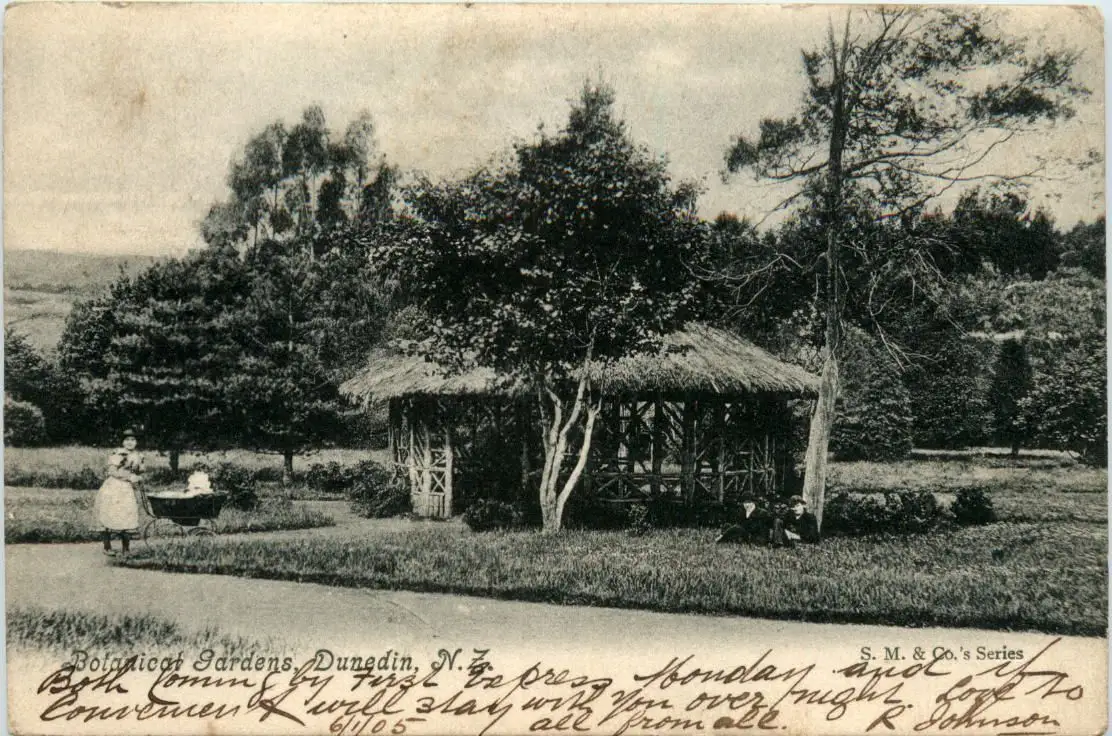 Botanical Gardens, Dunedin, N.Z.
S. M. & Co.'s Series
Both Coming by First Express Monday and if
Convenient will stay with you over night. Love to
6/1/05 all from all. R Johnson